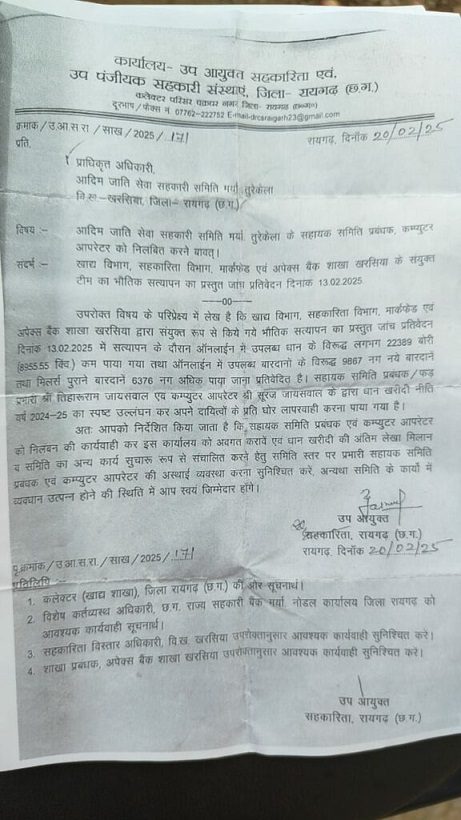 कार्यालय- उप आयुक्त सहकारिता एवं,
उप पंजीयक सहकारी संस्थाएं, जिला- रायगढ़ (छ.ग.)
कलेक्टर परिसर चक्रधर नगर जिला- रायगढ़ (छ०ग०)
दूरभाष / फैक्स नं. 07762-222752 E-mail-drcsraigarh23@gmail.com
क्रमांक / उ.आ.स.रा / साख / 2025 / 171 रायगढ़, दिनॉक 20/02/25
प्रति,
प्राधिकृत अधिकारी,
आदिम जाति सेवा सहकारी समिति मर्या. तुरेकेला
वि.ख.-खरसिया, जिला- रायगढ़ (छ.ग.)
विषय :- आदिम जाति सेवा सहकारी समिति मर्या. तुरेकेला के सहायक समिति प्रबंधक, कम्प्युटर
आपरेटर को निलंबित करने बावत्।
संदर्भ :- खाद्य विभाग, सहकारिता विभाग, मार्कफेड एवं अपेक्स बैंक शाखा खरसिया के संयुक्त
टीम का भौतिक सत्यापन का प्रस्तुत जांच प्रतिवेदन दिनांक 13.02.2025.
-----00-----
उपरोक्त विषय के परिप्रेक्ष्य में लेख है कि खाद्य विभाग, सहकारिता विभाग, मार्कफेड एवं
अपेक्स बैंक शाखा खरसिया द्वारा संयुक्त रूप से किये गये भौतिक सत्यापन का प्रस्तुत जांच प्रतिवेदन
दिनांक 13.02.2025 में सत्यापन के दौरान ऑनलाईन में उपलब्ध धान के विरूद्ध लगभग 22389 बोरी
(8955.55 क्विं.) कम पाया गया तथा ऑनलाईन में उपलब्ध बारदानो के विरूद्ध 9867 नग नये बारदानें
तथा मिलर्स पुराने बारदानें 6376 नग अधिक पाया जाना प्रतिवेदित है। सहायक समिति प्रबंधक / फड़
प्रभारी श्री तिहारूराम जायसवाल एवं कम्प्युटर आपरेटर श्री सूरज जायसवाल के द्वारा धान खरीदी नीति
वर्ष 2024-25 का स्पष्ट उल्लंघन कर अपने दायित्वों के प्रति घोर लापरवाही करना पाया गया है।
अतः आपको निर्देशित किया जाता है कि, सहायक समिति प्रबंधक एवं कम्प्युटर आपरेटर
को निलंबन की कार्यवाही कर इस कार्यालय को अवगत करावें एवं धान खरीदी की अंतिम लेखा मिलान
व समिति का अन्य कार्य सुचारू रूप से संचालित करने हेतु समिति स्तर पर प्रभारी सहायक समिति
प्रबंधक एवं कम्प्युटर आपरेटर की अस्थाई व्यवस्था करना सुनिश्चित करें, अन्यथा समिति के कार्यों में
व्यवधान उत्पन्न होने की स्थिति में आप स्वयं जिम्मेदार होंगे।
उप आयुक्त
सहकारिता, रायगढ़ (छ.ग.)
पृ.क्रमांक / उ.आ.स.रा. / साख / 2025 / 171 रायगढ़, दिनॉक 20/02/25
प्रतिलिपि :-
1. कलेक्टर (खाद्य शाखा), जिला रायगढ़ (छ.ग.) की ओर सूचनार्थ।
2. विशेष कर्तव्यस्थ अधिकारी, छ.ग. राज्य सहकारी बैंक मर्या. नोडल कार्यालय जिला रायगढ़ को
आवश्यक कार्यवाही सूचनार्थ।
3. सहकारिता विस्तार अधिकारी, वि.ख. खरसिया उपरोक्तानुसार आवश्यक कार्यवाही सुनिश्चित करें।
4. शाखा प्रबंधक, अपेक्स बैंक शाखा खरसिया उपरोक्तानुसार आवश्यक कार्यवाही सुनिश्चित करें।
उप आयुक्त
सहकारिता, रायगढ़ (छ.ग.)